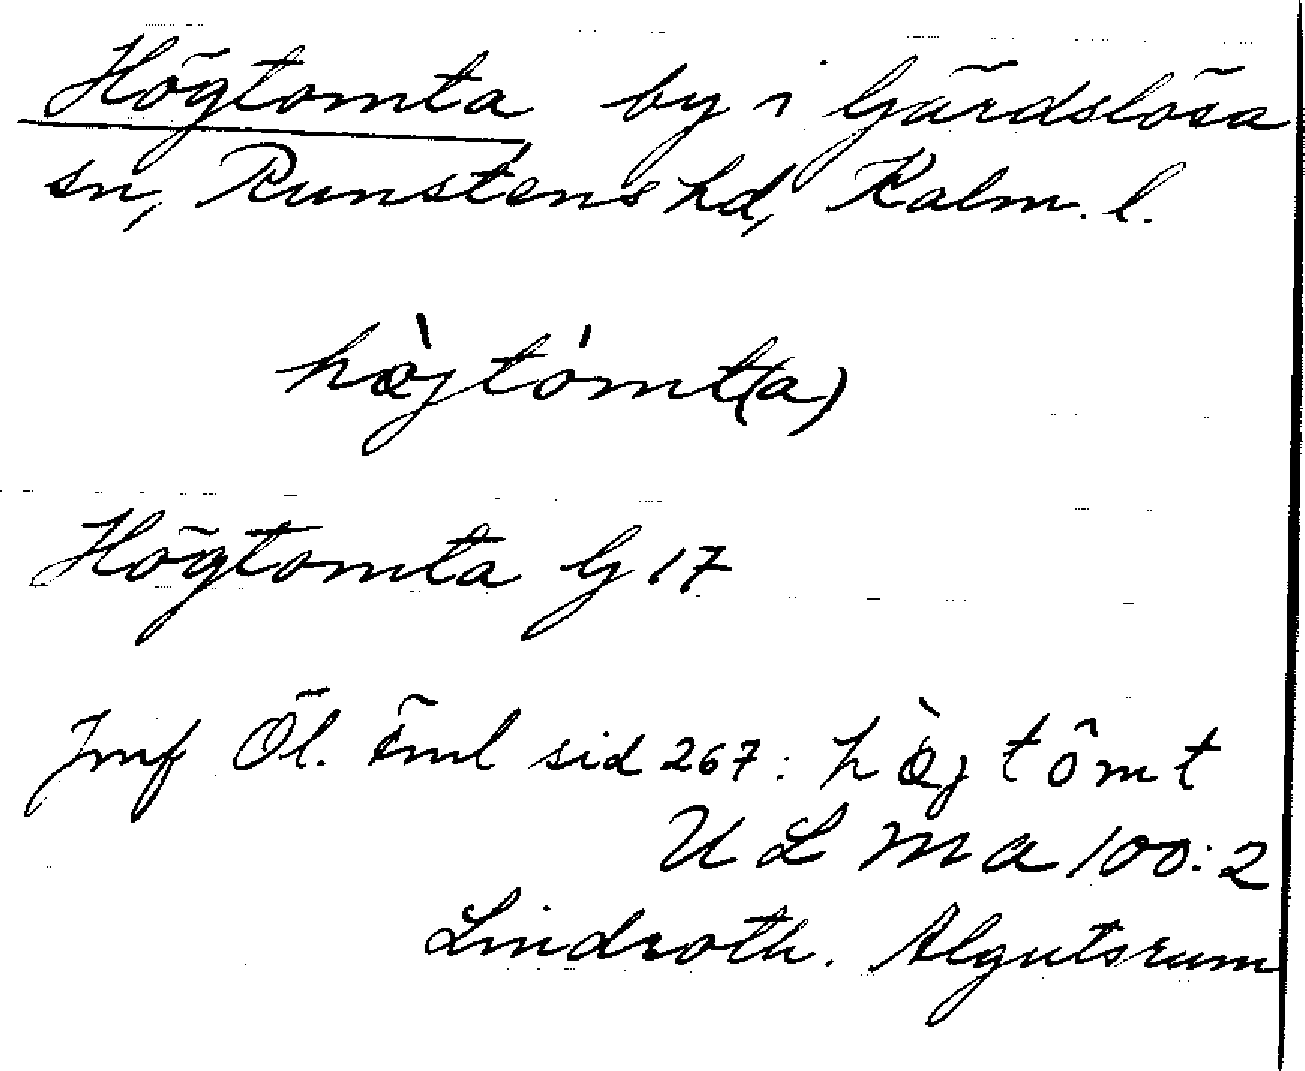 Högtomta by i Gärdslösa
sn, Runstens hd, Kalm. l.
hø̀jtómt(a)
Högtomta G 17
Jmf Öl. öml sid 267: hø̀jtômt
ULMA 100:2
Lindroth. Algutsrum